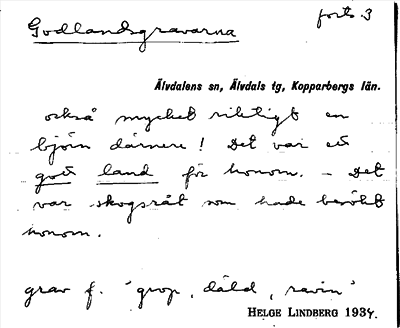 Godlandsgravarna
forts. 3
Älvdalens sn, Älvdals tg, Kopparbergs län.
också mycket riktigt en
björn därnere! Det var ett
gott land för honom. – Det
var skogsråt som hade besökt
honom.
grav f. 'grop, däld, ravin'
HELGE LINDBERG 1934.